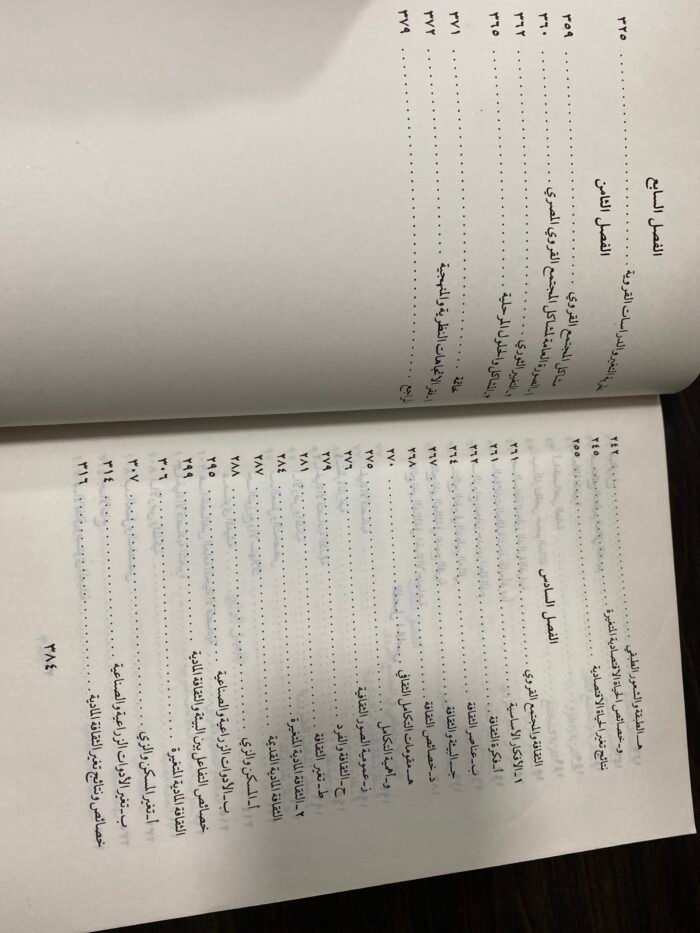 هـ ـ الطبقة والشعور الطبقي ٢٤٢
و ـ خصائص الحياة الاقتصادية المتغيرة ٢٤٥
نتائج تغير الحياة الاقتصادية ٢٥٥
الفصل السادس
الثقافة والمجتمع القروي
١ ـ الأفكار الأساسية ٢٦١
أ ـ فكرة الثقافة ٢٦١
ب ـ عناصر الثقافة ٢٦٢
جـ ـ البيئة والثقافة ٢٦٤
د ـ خصائص الثقافة ٢٦٧
هـ ـ مقومات التكامل الثقافي ٢٦٨
و ـ أهمية التكامل ٢٧٠
ز ـ عمومية الصور الثقافية ٢٧٥
ح ـ الثقافة والفرد ٢٧٦
ط ـ تغير الثقافة ٢٧٩
٢ ـ الثقافة المادية المتغيرة ٢٨١
الثقافة المادية القديمة ٢٨٤
أ ـ المسكن والزي ٢٨٧
ب ـ الأدوات الزراعية والصناعية ٢٨٨
خصائص التفاعل بين البيئة والثقافة المادية ٢٩٥
الثقافة المادية المتغيرة ٢٩٩
أ ـ تغير المسكن والزي ٣٠٦
ب ـ تغير الأدوات الزراعية والصناعية ٣٠٧
خصائص ونتائج تغير الثقافة المادية ٣١٤
٣١٦
٣٨٤
الفصل السابع
التغير والدراسات القروية ٣٢٥
الفصل الثامن
مشاكل المجتمع القروي ٣٥٩
الصورة العامة لمشاكل المجتمع القروي المصري ٣٦٠
التغير الثوري ٣٦٢
المشاكل والحلول المرحلية ٣٦٥
خاتمة ٣٧١
الاتجاهات النظرية والمنهجية ٣٧٢
المراجع ٣٧٩